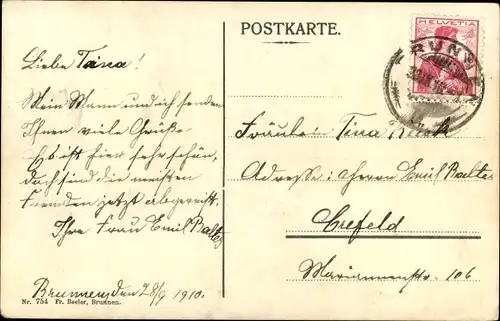 POSTKARTE.
HELVETIA
BRUNN
Liebe Tina!
Mein Mann und ich senden
Ihnen viele Grüße.
Es ist hier sehr schön,
doch sind die meisten
Fremden jetzt abgereist.
Ihre Frau Emil Balter
Brunnen, den 28/9 1910.
Fräulein Tina
Adresse: Herrn Emil Balter
Crefeld
Mariannenstr. 106
Nr. 754 Fr. Beeler, Brunnen.